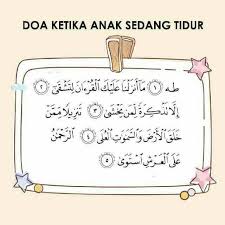 DOA KETIKA ANAK SEDANG TIDUR
طه ۝١ مَآ أَنزَلْنَا عَلَيْكَ ٱلْقُرْءَانَ لِتَشْقَىٰٓ ۝٢
إِلَّا تَذْكِرَةً لِّمَن يَخْشَىٰ ۝٣ تَنزِيلًا مِّمَّنْ
خَلَقَ ٱلْأَرْضَ وَٱلسَّمَٰوَٰتِ ٱلْعُلَى ۝٤ ٱلرَّحْمَٰنُ
عَلَى ٱلْعَرْشِ ٱسْتَوَىٰ ۝٥